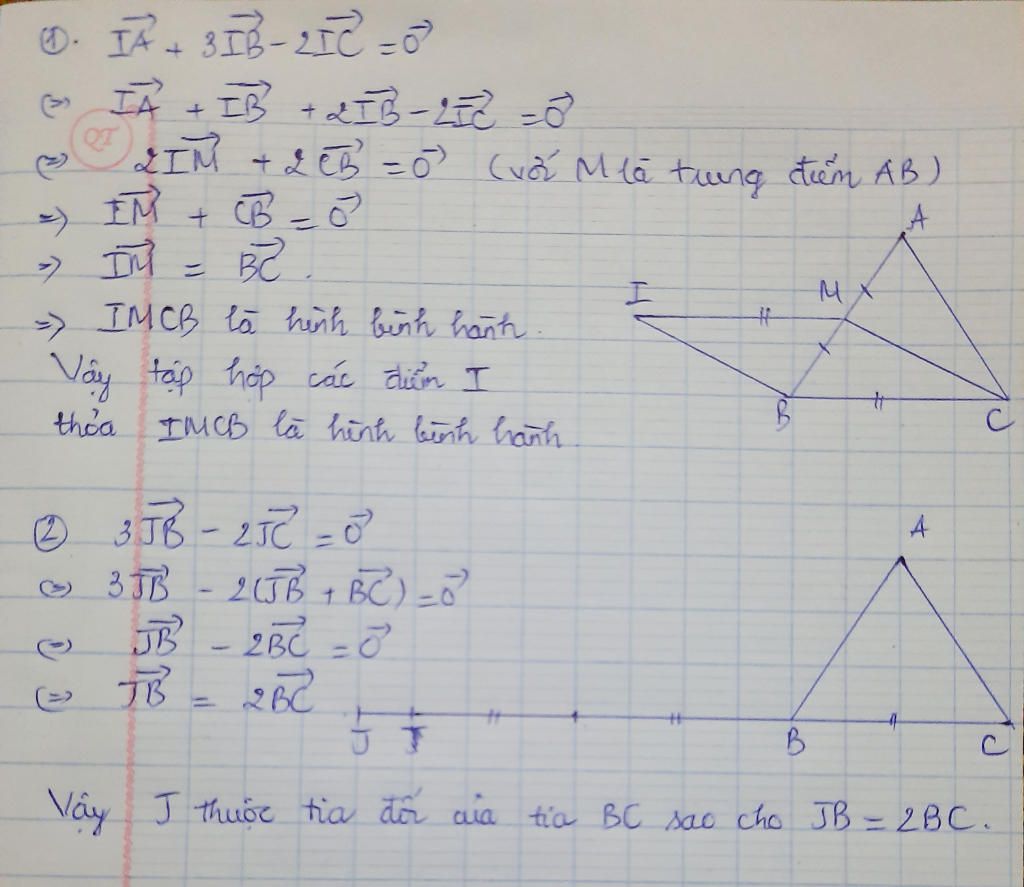 ①. IA→ + 3IB→ - 2IC→ = 0→
(=) IA→ + IB→ + 2IB→ - 2IC→ = 0→
(=) 2IM→ + 2CB→ = 0→ (với M là trung điểm AB)
=> IM→ + CB→ = 0→
=> IM→ = BC→.
=> IMCB là hình bình hành.
Vậy tập hợp các điểm I
thỏa IMCB là hình bình hành
A
M
I
B
C
② 3JB→ - 2JC→ = 0→
(=) 3JB→ - 2(JB→ + BC→) = 0→
(=) JB→ - 2BC→ = 0→
(=) JB→ = 2BC→
A
J
B
C
Vậy J thuộc tia đối của tia BC sao cho JB = 2BC.